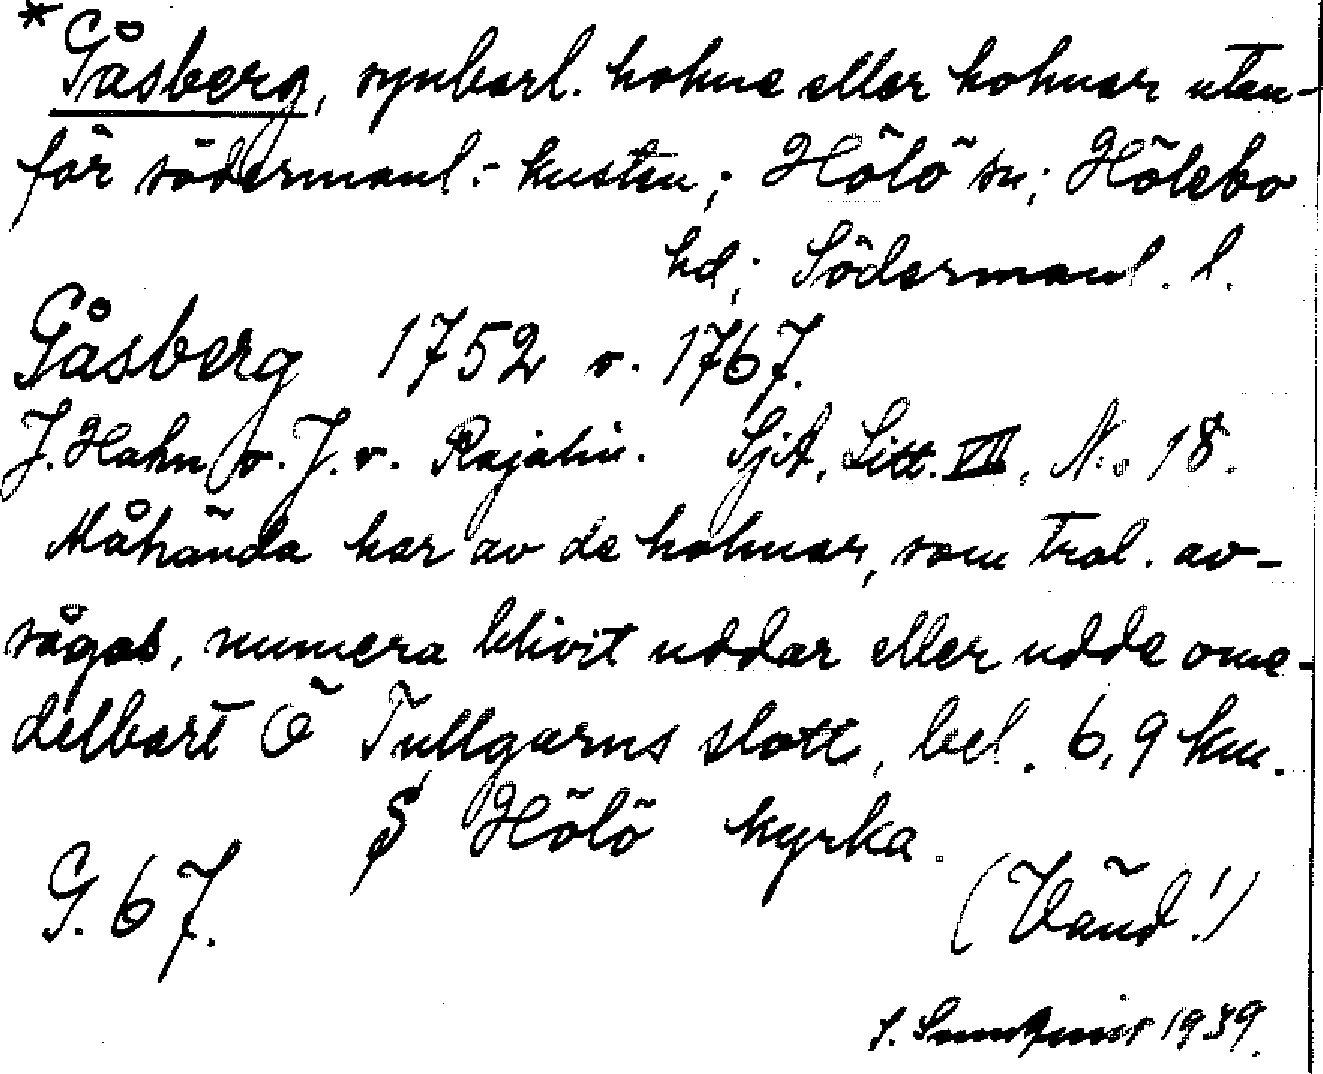 *Gåsberg, synbarl. holme eller holmar utan-
för södermanl.-kusten; Hölö sn; Hölebo
hd; Södermanl. l.
Gåsberg 1752 o. 1767.
J. Hahn o. J. v. Rajalin. SjA, Litt. VII, N:o 18.
Måhända har av de holmar, som trol. av-
sågos, numera blivit uddar eller udde ome-
delbart Ö Tullgarns slott, bel. 6,9 km.
S Hölö kyrka.
G. 67.
(Vänd!)
S. 1939.